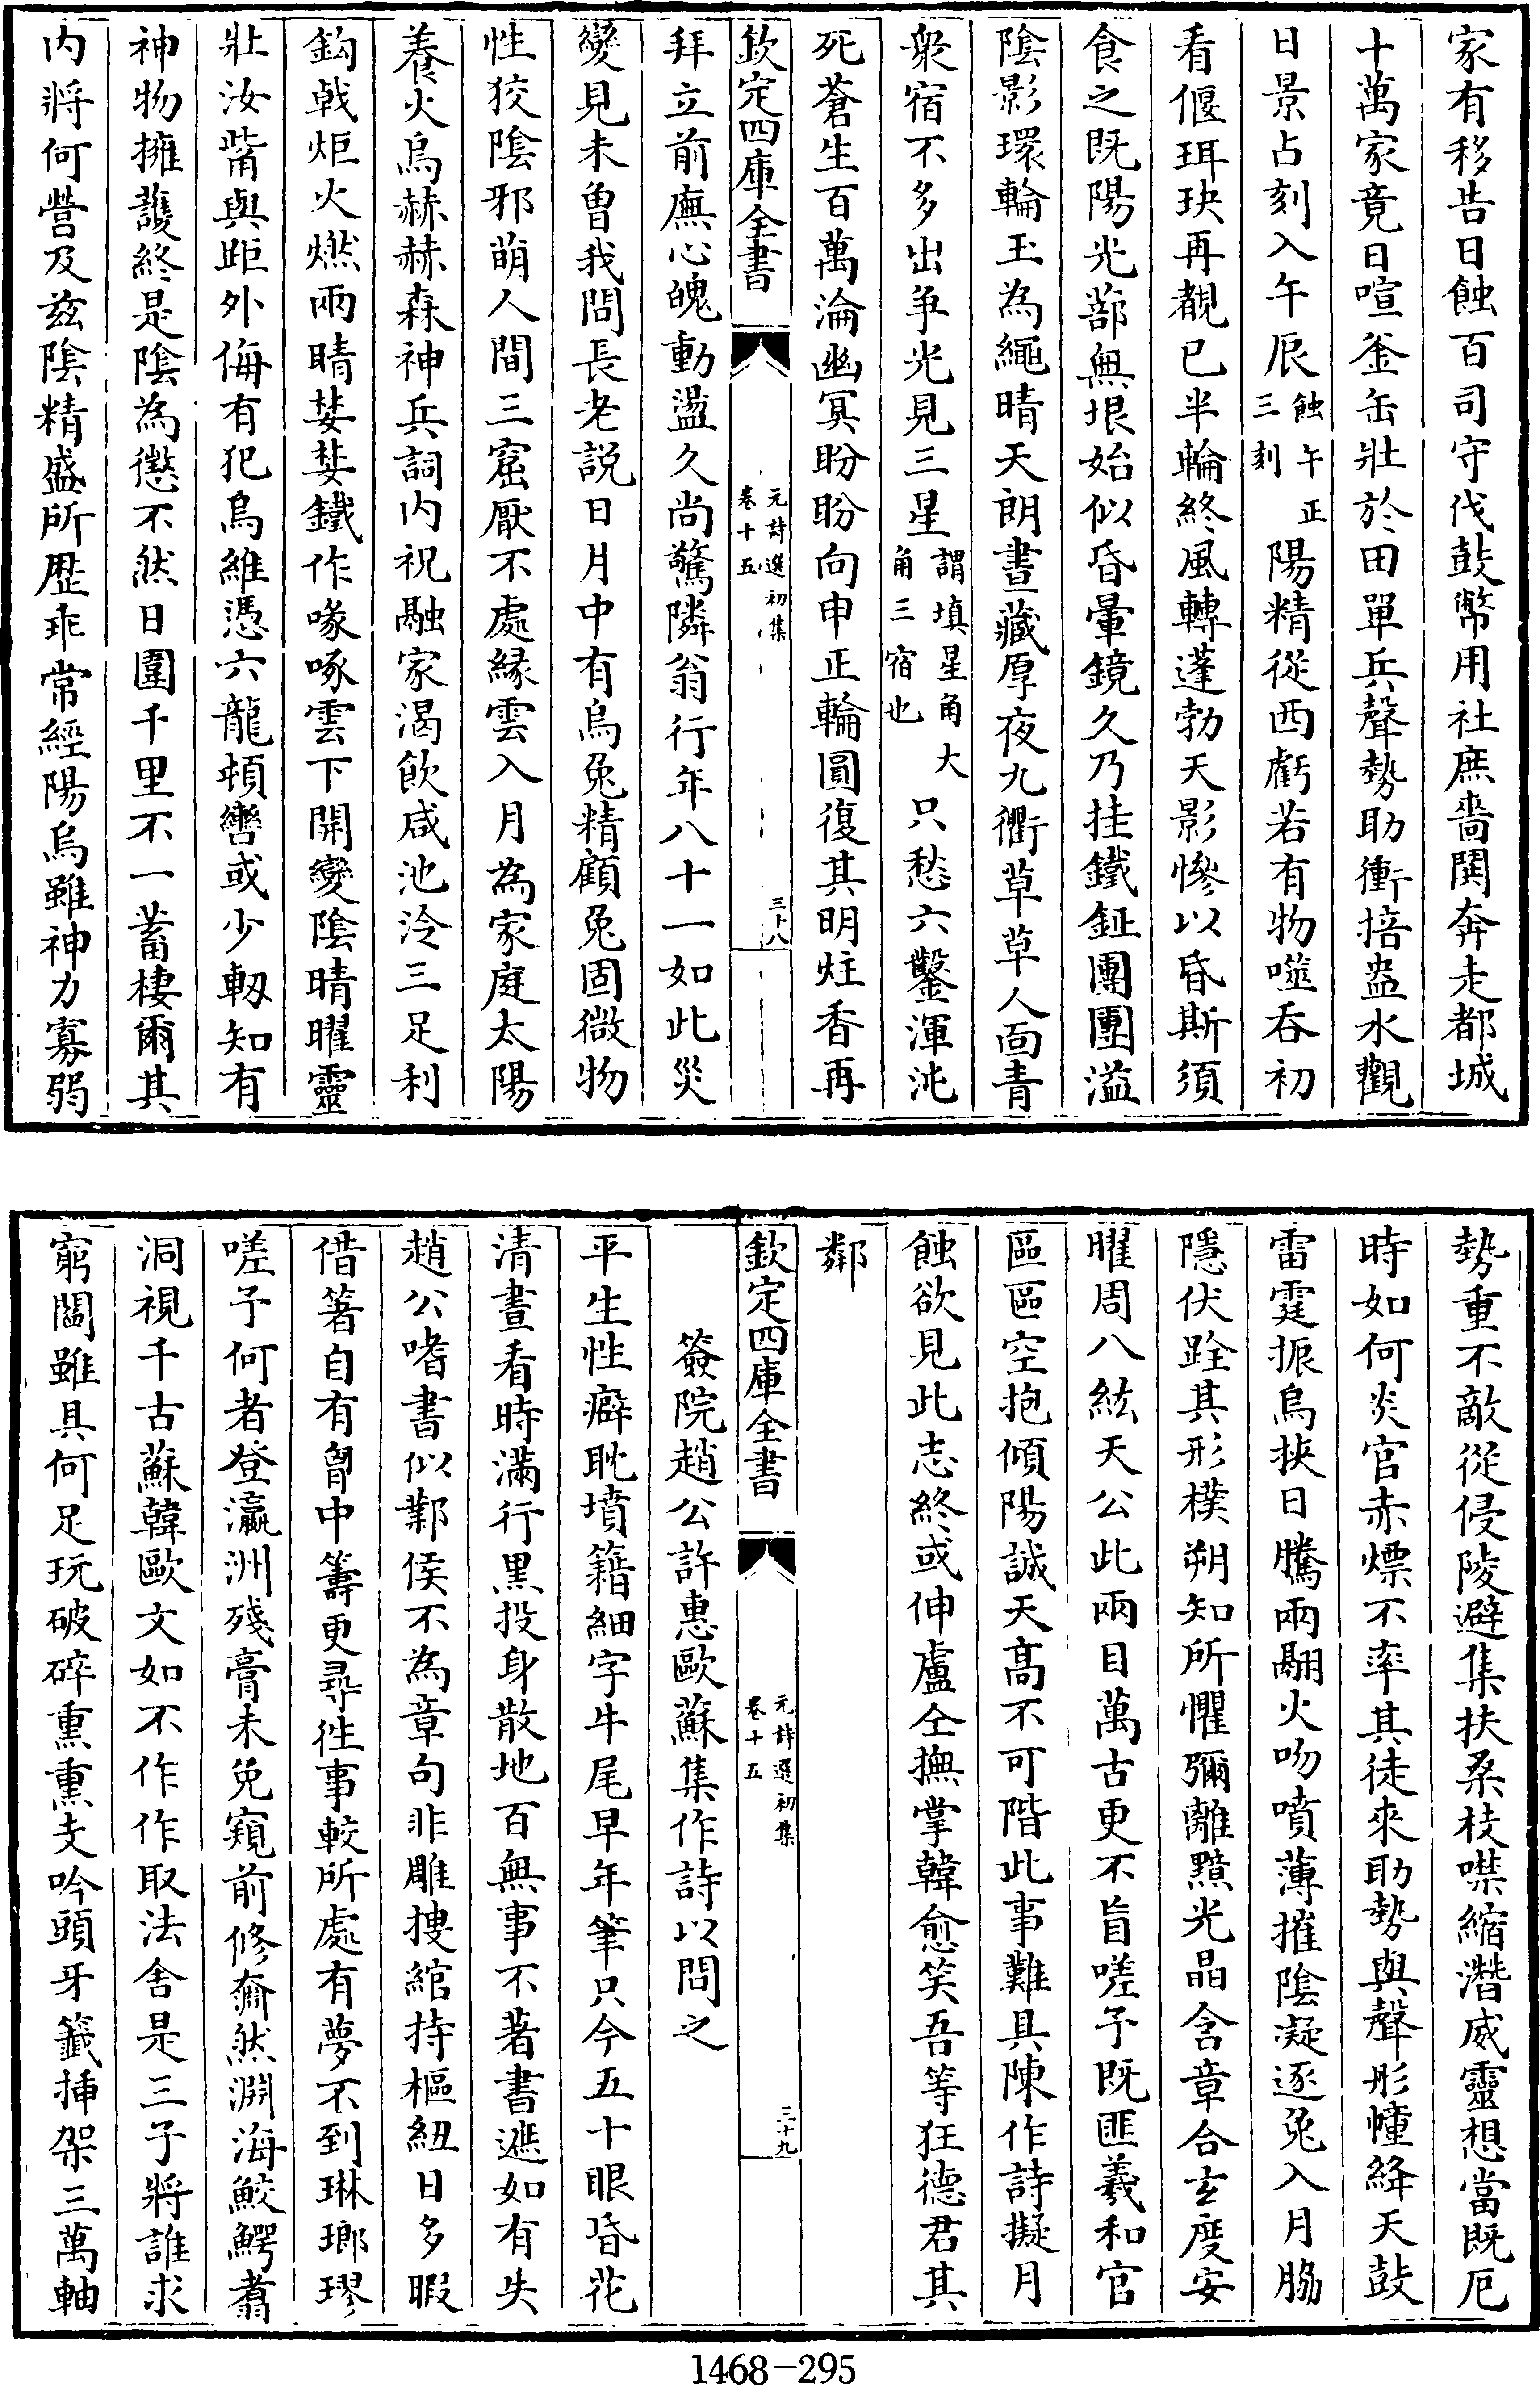 家有移告日蝕百司守伐鼓幣用社庶嗇閧奔走都城
十萬家竟日喧釜缶壯於田單兵聲勢助衝掊盎水觀
日景占刻入午辰蝕午正三刻陽精從西虧若有物噬吞初
看偃珥玦再覩已半輪終風轉蓬勃天影慘以昏斯須
食之既陽光蔀無垠始似昏暈鏡久乃挂鐵鉦團團溢
陰影環輪玉為繩晴天朗晝藏厚夜九衢草草人面青
衆宿不多出争光見三星謂填星角大角三宿也只愁六鑿渾沌
死蒼生百萬淪幽冥盼盼向申正輪圓復其明炷香再
欽定四庫全書
元詩選初集
卷十五
三十八
拜立前廡心魄動盪久尚驚隣翁行年八十一如此災
變見未曾我問長老説日月中有烏兔精顧兔固微物
性狡陰邪萌人間三窟厭不處縁雲入月為家庭太陽
養火烏赫赫森神兵詞内祝融家渴飲咸池泠三足利
鈎戟炬火燃兩睛婪婪鐵作喙啄雲下開變陰晴曜靈
壯汝觜與距外侮有犯烏維憑六龍頓轡或少軔知有
神物擁䕶終是陰為慝不然日圍千里不一蓄棲爾其
内將何營及兹陰精盛所歴乖常經陽烏雖神力寡弱
勢重不敵從侵陵避集扶桑枝噤縮潛威靈想當既厄
時如何炎官赤熛不率其徒來助勢與聲彤幢絳天鼓
雷霆振烏挾日騰兩翮火吻噴薄摧陰凝逐兔入月脇
隱伏跧其形樸朔知所懼彌離黰光晶含章合玄度安
曜周八紘天公此兩目萬古更不盲嗟予既匪羲和官
區區空抱傾陽誠天髙不可階此事難具陳作詩擬月
蝕欲見此志終或伸盧仝撫掌韓愈笑吾等狂德君其
鄰
欽定四庫全書
元詩選初集
卷十五
三十九
簽院趙公許惠歐蘇集作詩以問之
平生性癖耽墳籍細字牛尾早年筆只今五十眼昏花
清晝看時滿行黒投身散地百無事不著書遮如有失
趙公嗜書似鄴侯不為章句非雕搜綰持樞紐日多暇
借箸自有胷中籌更尋徃事較所處有夢不到琳瑯璆
嗟予何者登瀛洲殘膏未免窺前修奫然淵海鮫鰐翥
洞視千古蘇韓歐文如不作作取法舍是三子將誰求
窮閻雖具何足玩破碎熏熏支吟頭牙籤揷架三萬軸
1468-295